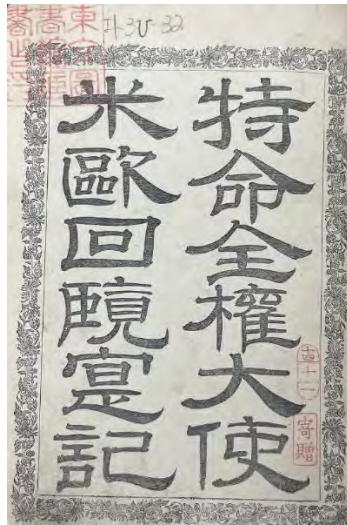 特命全權大使
米歐回覽寔記
寄贈